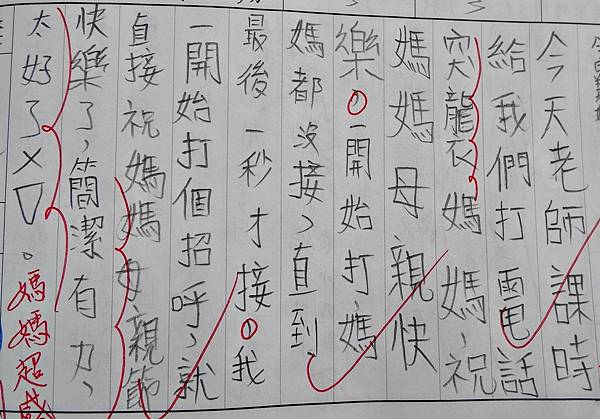 今天老師課時
給我們打電話
突襲媽媽,祝
媽媽母親快
樂。一開始打,媽
媽都沒接,直到
最後一秒才接。我
一開始打個招呼,就
直接祝媽媽母親節
快樂了,簡潔有力,
太好了X▽。媽媽超感